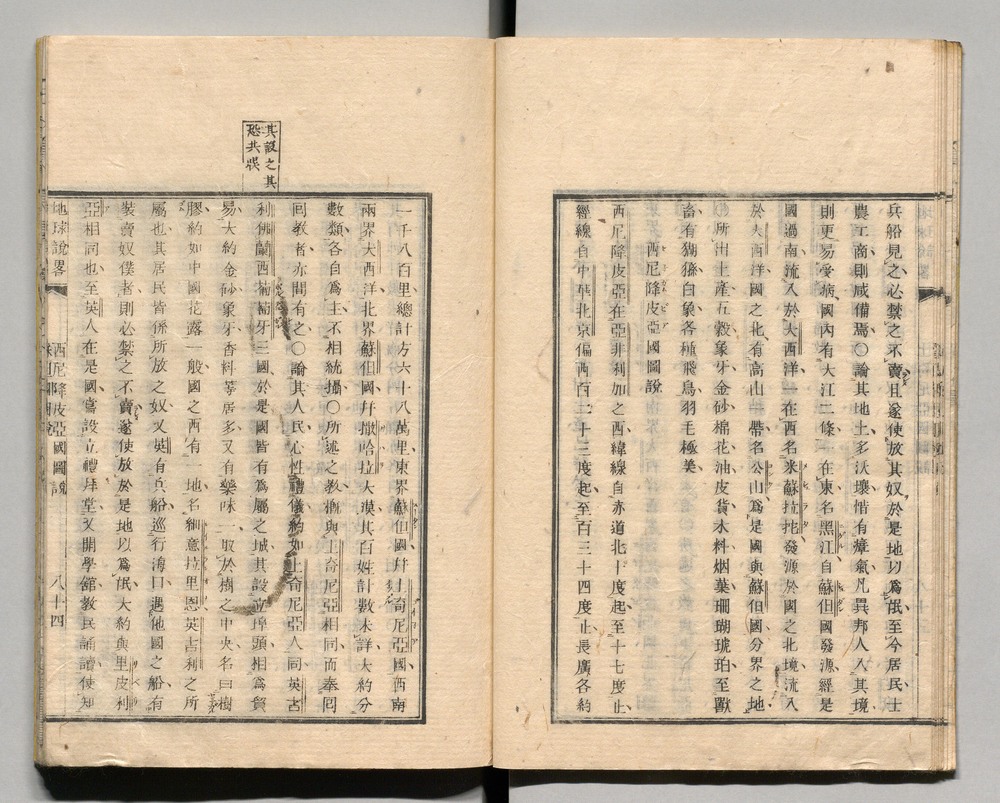 兵船見之必禁之不賣且遂使放其奴於是地以爲氓至今居民士
農工商則咸備焉〇論其地土多沃壤惜有瘴氣凡異邦人入其境
則更易受病國內有大江二條一在東名黑江自蘇伯國發源經是
國過南流入於大西洋一在西名米蘇拉地發源於國之北境流入
於大西洋國之北有高山一帶名公山爲是國與蘇伯國分界之地
所出土產五穀象牙金砂棉花油皮貨木料烟葉珊瑚琥珀至獸
畜有猢猻白象各種飛鳥羽毛極美
西尼降皮亞國圖說
西尼降皮亞在亞非利加之西緯線自赤道北十度起至十七度止
經線自中華北京偏西百二十三度起至百三十四度止長廣各約
其設之其
恐共誤
一千八百里總計方六十八萬里東界蘇伯國幷上奇尼亞國西南
兩界大西洋北界蘇伯國幷撒哈拉大漠其百姓計數未詳大約分
數類各自爲主不相統攝〇所述之教猶與上奇尼亞相同而奉回
回教者亦間有之〇論其人民心性禮儀約如上奇尼亞人同英吉
利佛蘭西葡萄牙三國於是國皆有爲屬之城其設立埠頭相爲貿
易大約金砂象牙香料等居多又有藥味一取於樹之中央名曰樹
膠約如中國花露一般國之西有一地名細意拉里恩英吉利之所
屬也其居民皆係所放之奴又英有兵船巡行海口遇他國之船有
裝賣奴僕者則必禁之不賣遂使放於是地以爲氓大約與里皮利
亞相同也至英人在是國嘗設立禮拜堂又開學館教民誦讀使知
地球說畧 西尼降皮亞國圖說 八十四